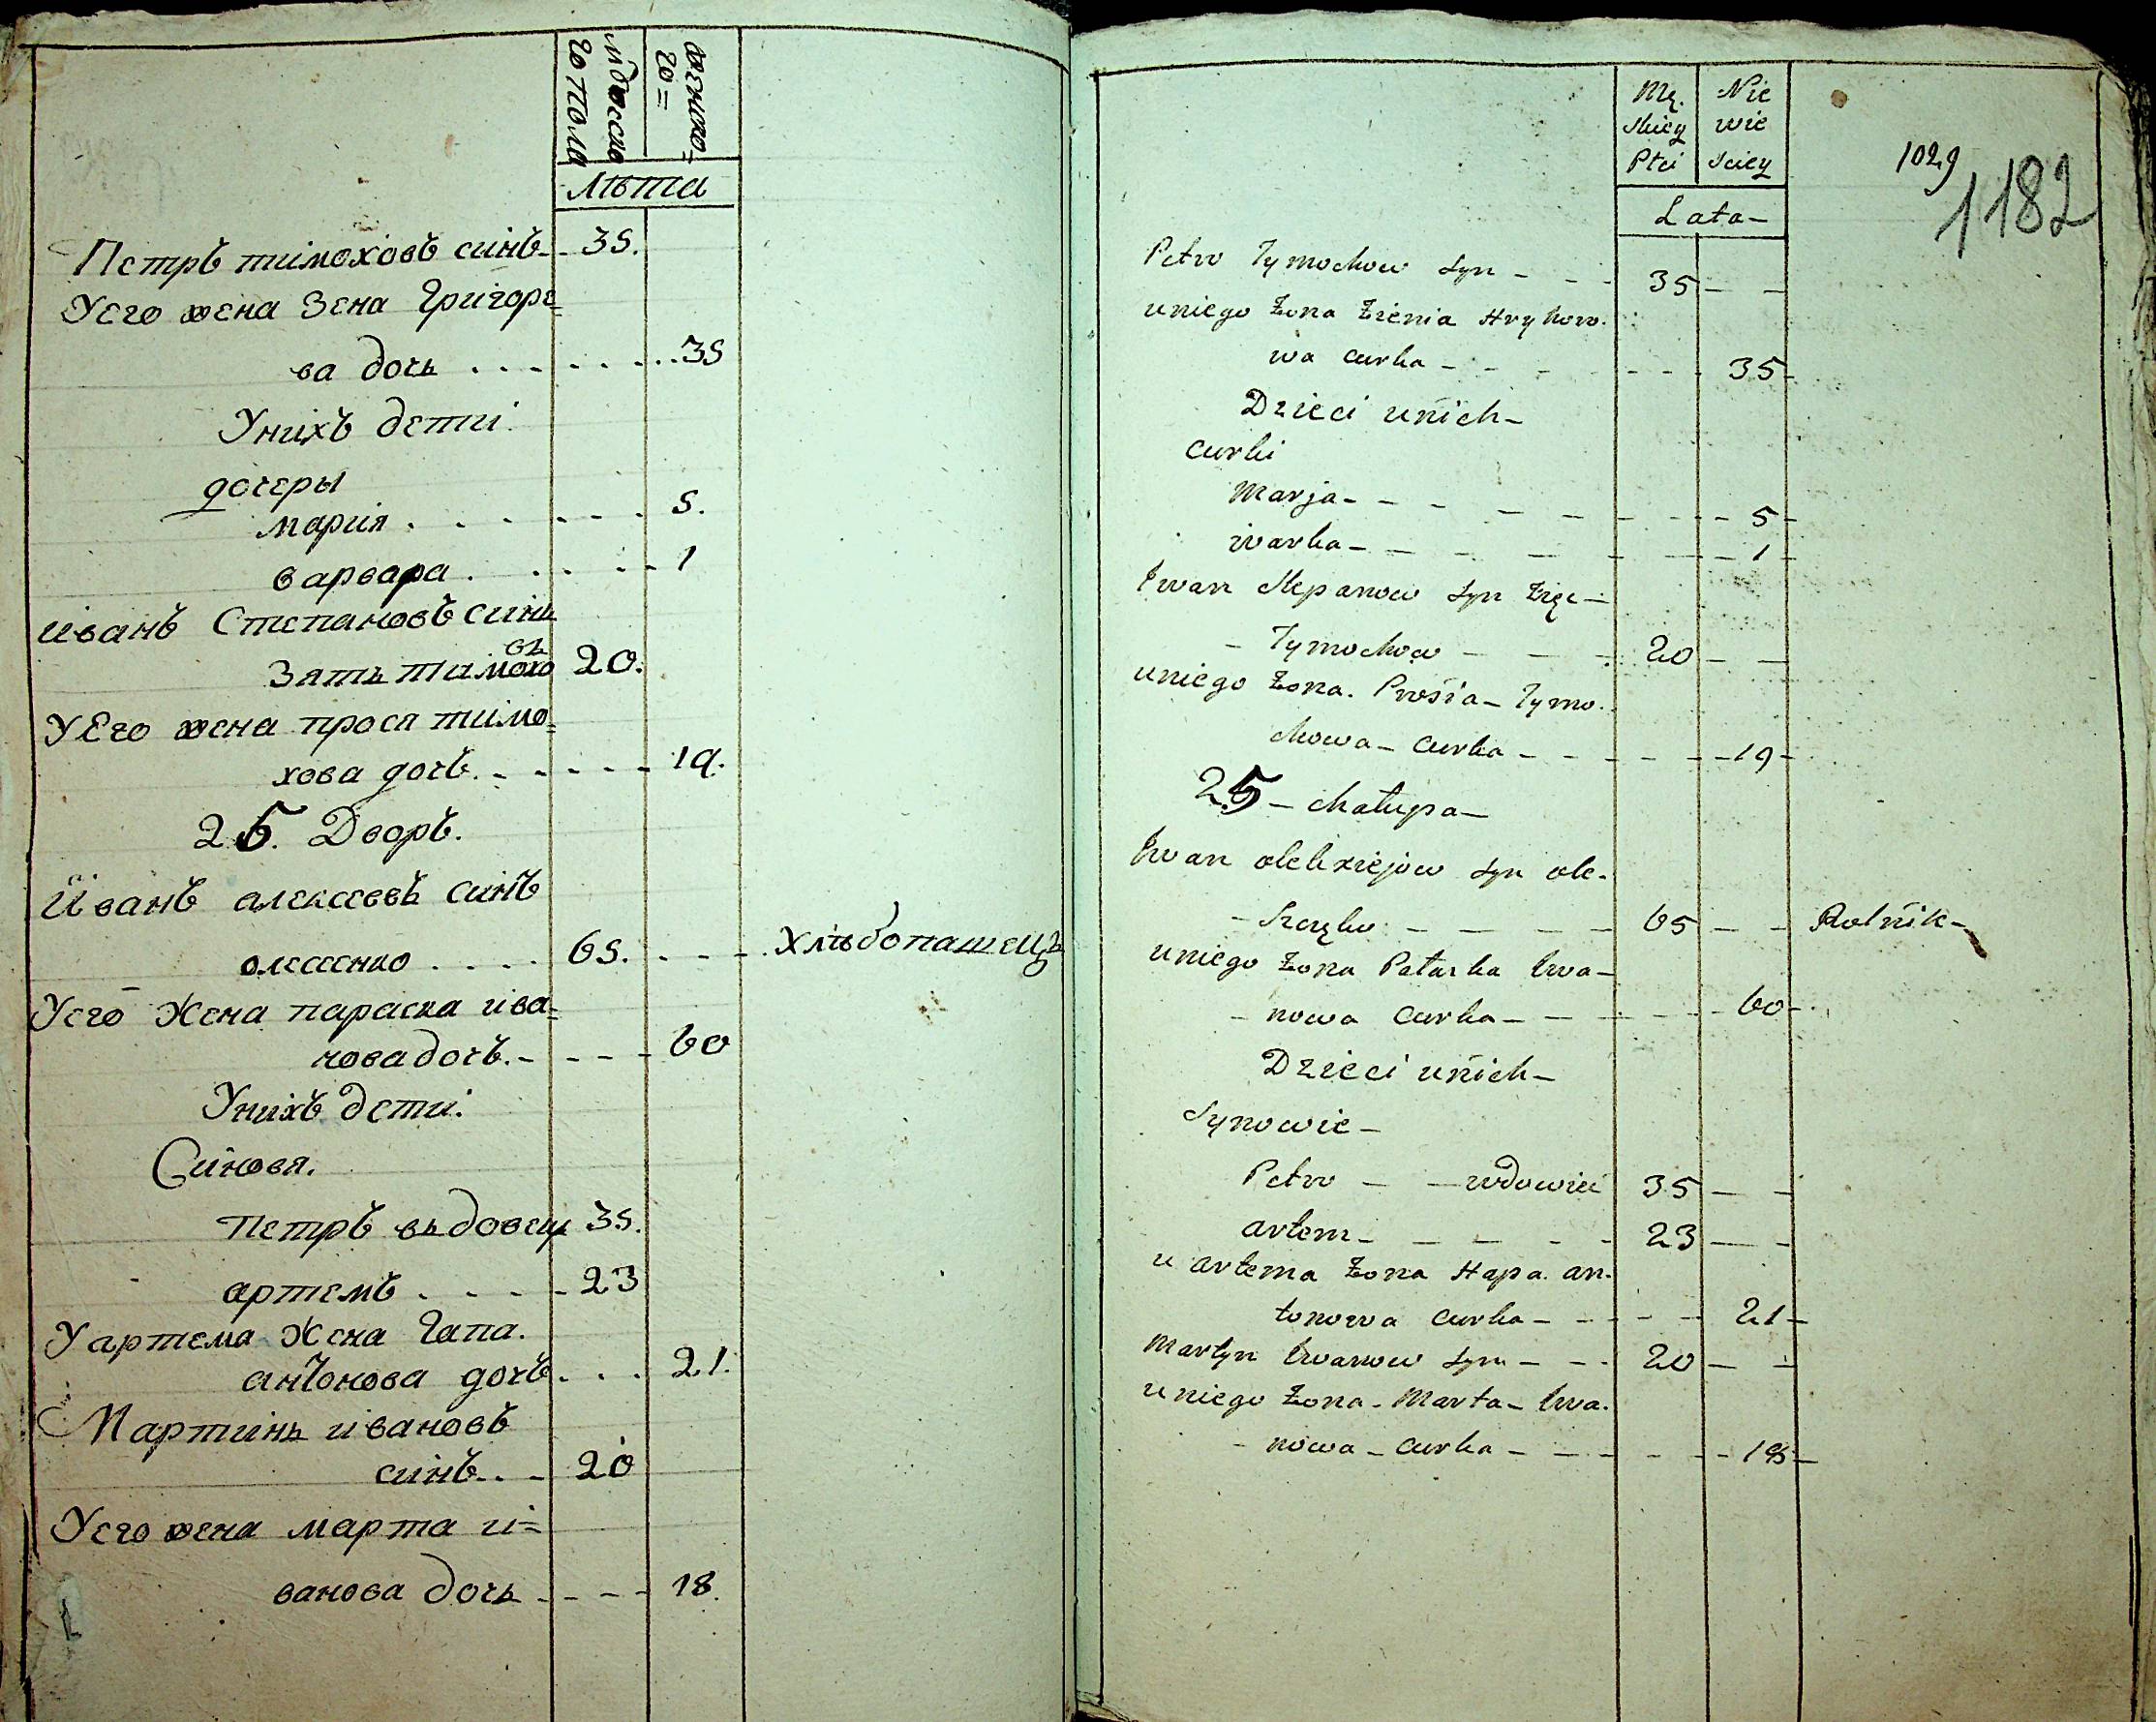 мужеска
го пола
женско=
го =
лѣта
Петръ тимоховъ синъ 35.
Уего жена Зена Григоре=
ва дочь . . . . . . . 35
Унихъ дети.
дочеры
мария . . . . . . . 5.
варвара . . . . . 1
иванъ Степановъ синъ
зять тимохо
въ
20.
УЕго жена прося тимо=
хова дочъ. - - - - - 19.
25. Дворъ.
Иванъ алексеевъ синъ
олесенко . . . . 65. . . . хлѣбопашецъ
Уего Жена параска ива=
нова дочъ. - - - - 60
Унихъ дети.
Синовя.
Петръ вьдовец 35.
артемъ . . . . 23
Уартема Жена Гапа.
антонова дочъ . . . 21.
Мартинъ ивановъ
синъ. . - 20
Уего жена марта и=
ванова дочь - - - - 18.
Mę.
skiey
Płci
Nie
wie
sciey
Lata-
1029
1182
Petro Tymochow syn - - - 35 - -
uniego Żona Zienia Hryhoro.
wa curka - - - - - - 35 -
Dzieci unich -
curki
Marja - - - - - - - - 5 -
warka - - - - - - - 1 -
Iwan Stepanow syn Zięc -
- Tymochow - - - 20 - -
uniego Żona. Prosia - Tymo.
chowa - curka - - - - - 19 -
25 - chałupa -
Iwan olekziejow syn ole.
- szenko - - - - 65 - - Rolnik -
uniego Żona Paraska Iwa -
- nowa curka - - - - - 60 -
Dzieci unich -
Synowie -
Petro - - wdowiec 35 - -
artem - - - - - 23 - -
u artema Żona Hapa. an.
tonowa curka - - - - 21 -
Martyn Iwanow syn - - - 20 - -
uniego Żona - Marta - Iwa.
- nowa - curka - - - - - 18 -